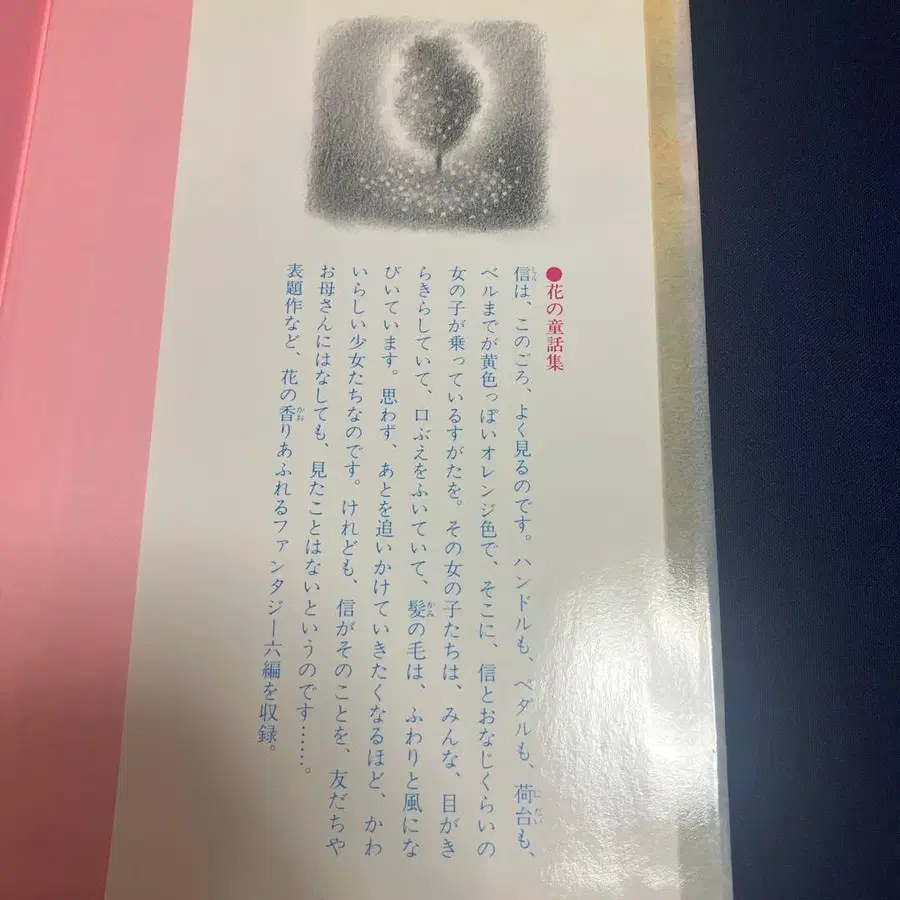 ●花の童話集
信は、このごろ、よく見るのです。ハンドルも、ペダルも、荷台も、
ベルまでが黄色っぽいオレンジ色で、そこに、信とおなじくらいの
女の子が乗っているすがたを。その女の子たちは、みんな、目がき
らきらしていて、口ぶえをふいていて、髪の毛は、ふわりと風にな
びいています。思わず、あとを追いかけていきたくなるほど、かわ
いらしい少女たちなのです。けれども、信がそのことを、友だちや
お母さんにはなしても、見たことはないというのです……。
表題作など、花の香りあふれるファンタジー六編を収録。